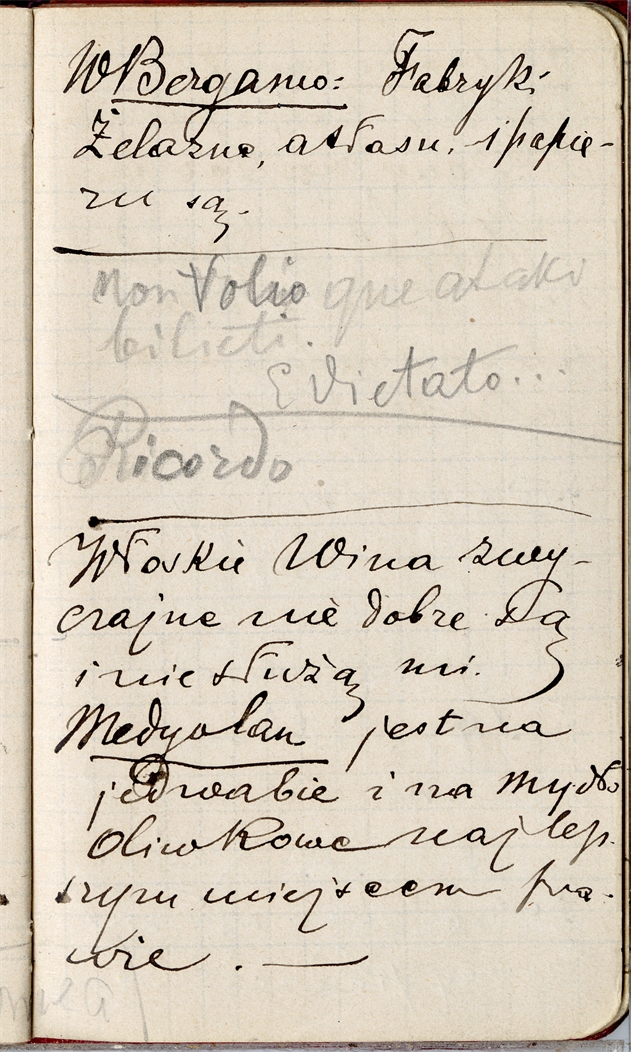 W Bergamo: Fabryki
Żelazne, atłasu, i papie-
ru są.
non Volio que ataki
bilieti.
E Vietato...
Ricordo
Włoskie Wina zwy-
czajne nie dobre są
i nie służą mi.
Medyolan jest na
jedwabie i na mydło
Oliwkowe najlep-
szym miejscem pra-
wie. —